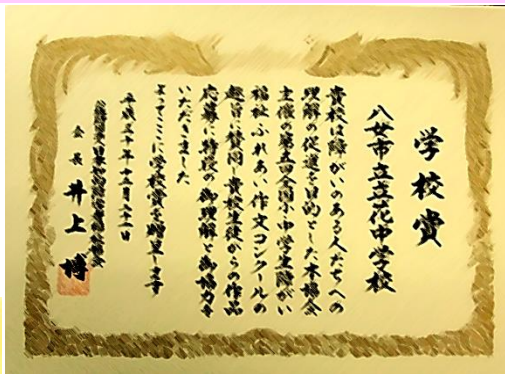 学校賞
八女市立立花中学校
貴校は障がいのある人たちへの
理解の促進を目的とした本協会
主催の第五回全国小中学生障がい
福祉ふれあい作文コンクールの
趣旨に賛同し貴校生徒からの作品
応募に特段の御理解と御協力を
いただきました
よってここに学校賞を贈呈します
平成三十年十二月
会長 井上博